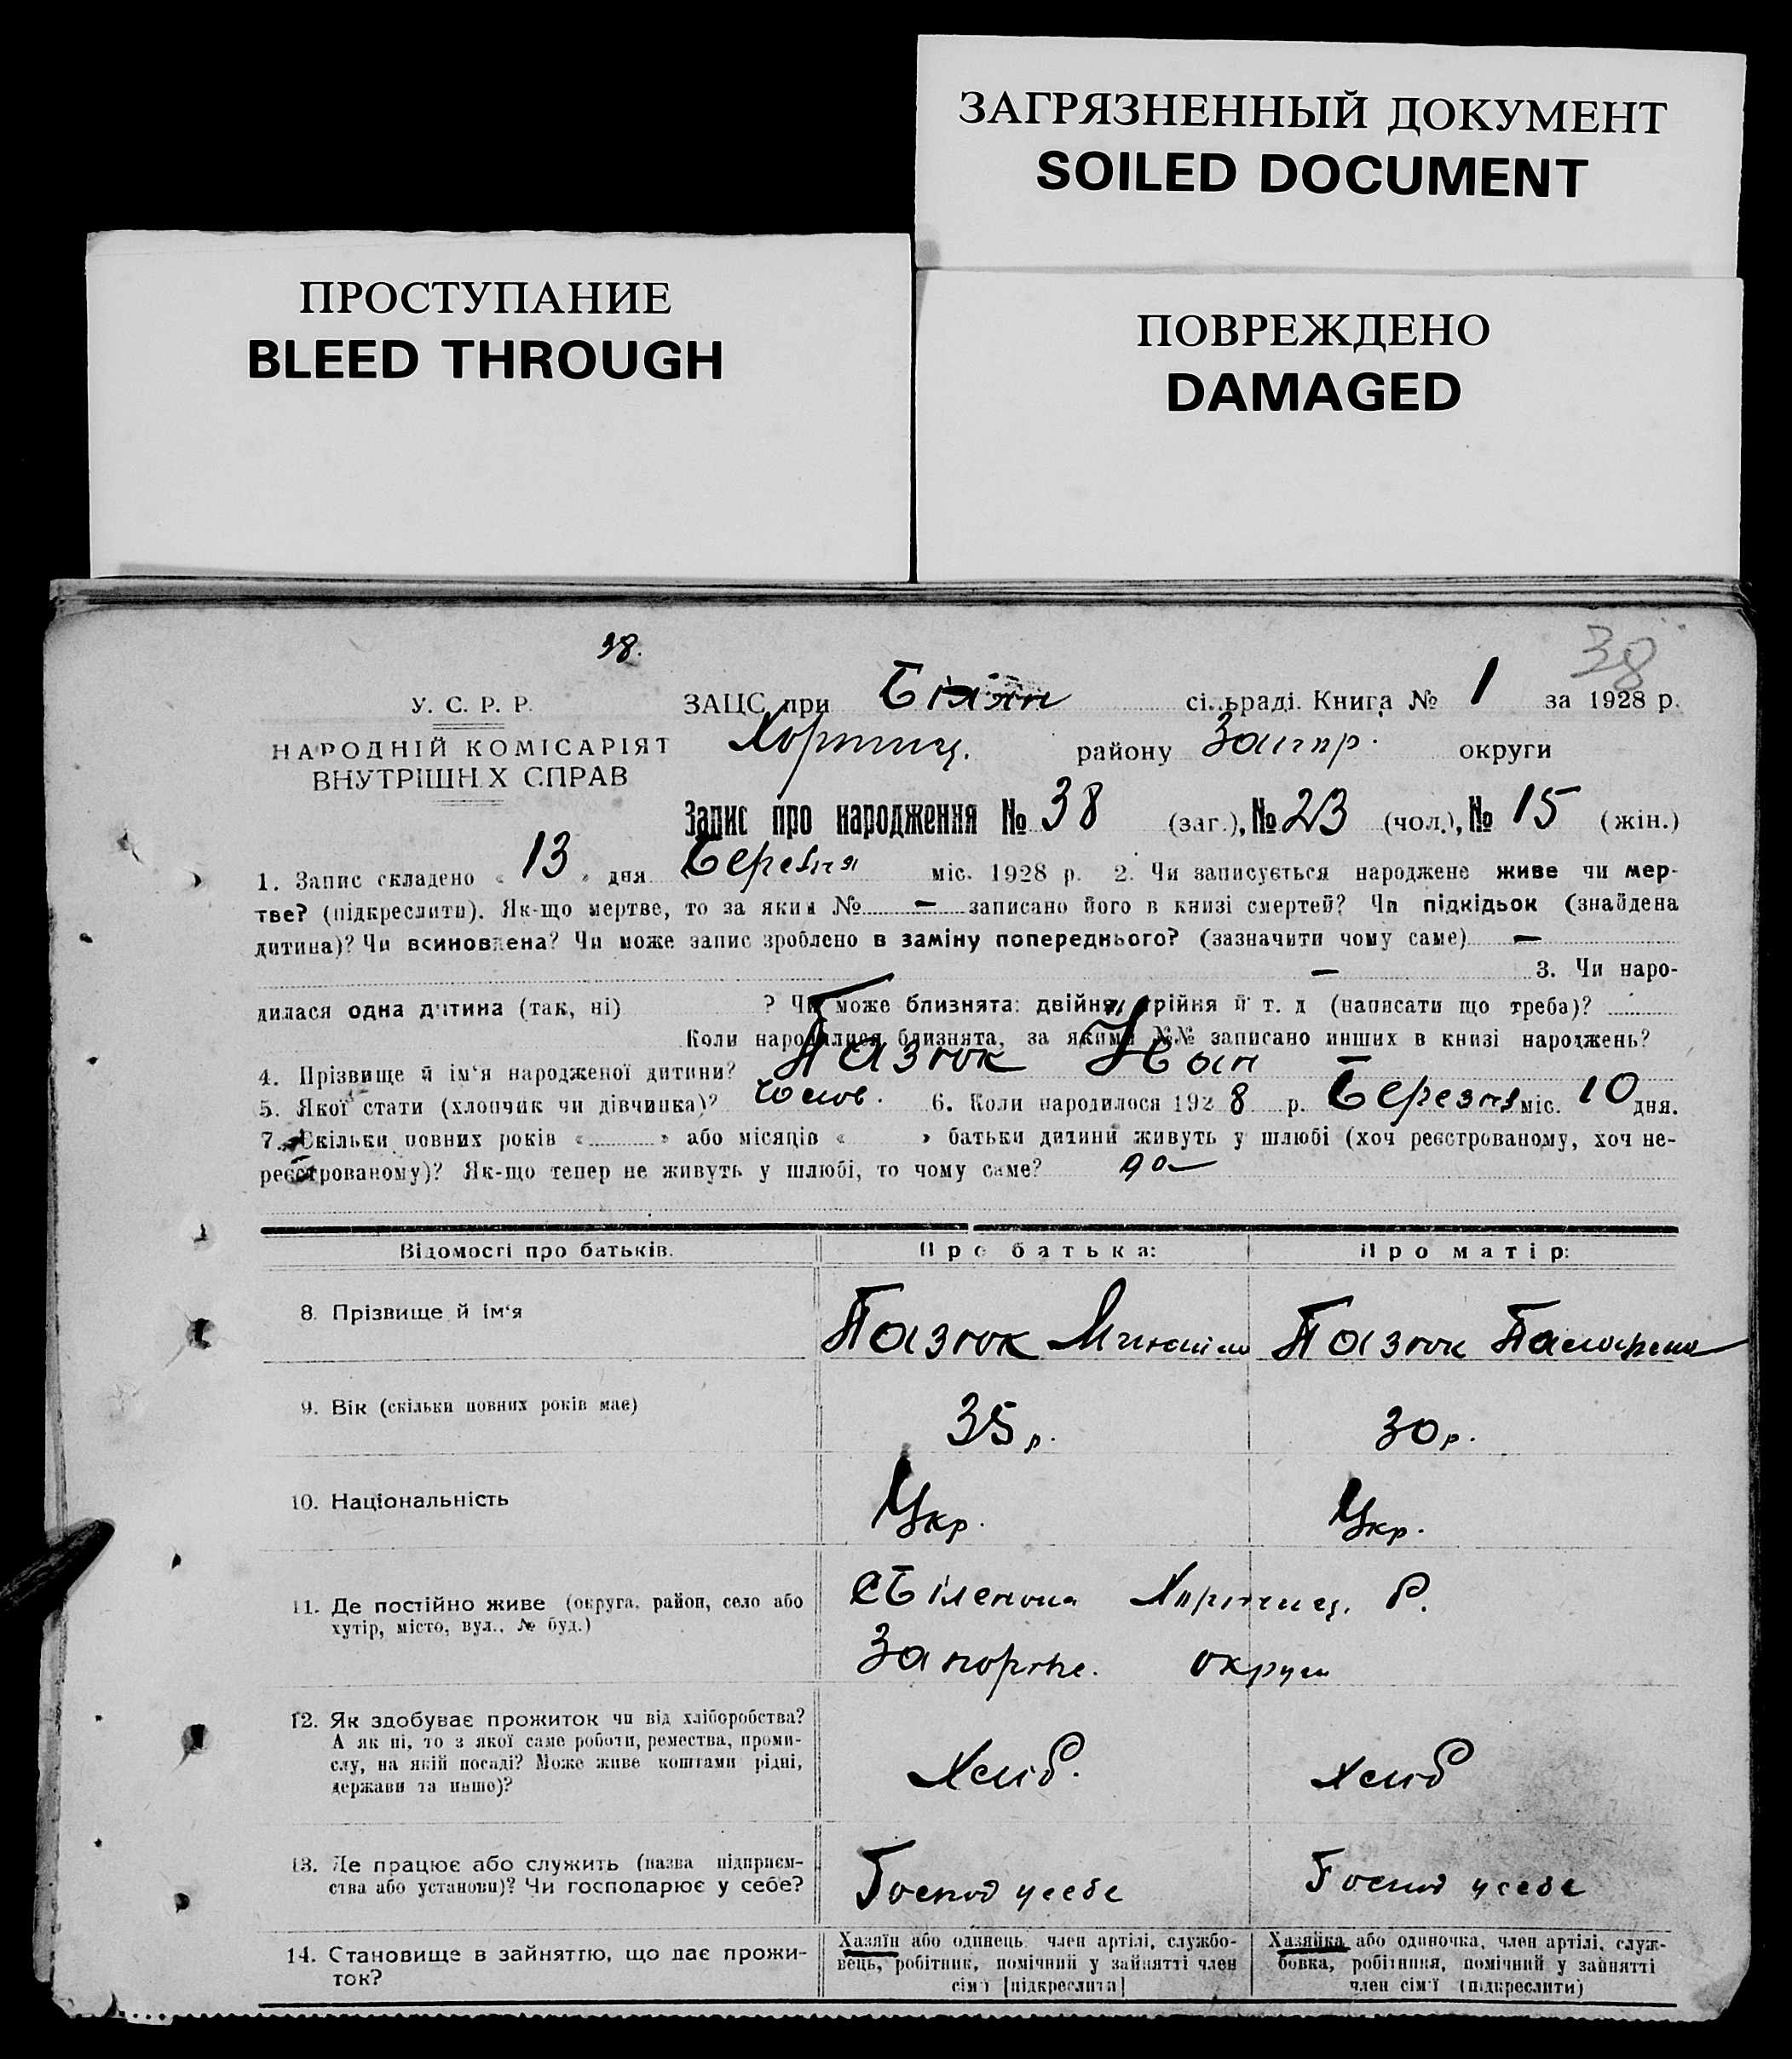 ЗАГРЯЗНЕННЫЙ ДОКУМЕНТ
SOILED DOCUMENT
ПРОСТУПАНИЕ
BLEED THROUGH
ПОВРЕЖДЕНО
DAMAGED
38.
38
У. С. Р. Р.
НАРОДНІЙ КОМІСАРІЯТ
ВНУТРІШНІХ СПРАВ
ЗАЦС при сільраді. Книга № 1 за 1928 р.
Хортиц. району Запор. округи
Запис про народження № 38 (заг.), № 23 (чол.), № 15 (жін.)
1. Запис складено « 13 » дня Березня міс. 1928 р. 2. Чи записується народжене живе чи мер-
тве? (підкреслити). Як-що мертве, то за яким № — записано його в книзі смертей? Чи підкідьок (знайдена
дитина)? Чи всиновлена? Чи може запис зроблено в заміну попереднього? (зазначити чому саме) —
— 3. Чи наро-
дилася одна дитина (так, ні) ? Чи може близнята: двійня, трійня й т. д (написати що треба)?
Коли народилися близнята, за якими №№ записано инших в книзі народжень?
4. Прізвище й ім'я народженої дитини? Пазюк Іван
5. Якої стати (хлопчик чи дівчинка)? Чолов. 6. Коли народилося 1928 р. Березня міс. 10 дня.
7. Скільки повних років « » або місяців « » батьки дитини живуть у шлюбі (хоч реєстрованому, хоч не-
реєстрованому)? Як-що тепер не живуть у шлюбі, то чому саме?
Відомості про батьків. Про батька: Про матір:
8. Прізвище й ім'я Пазюк Пазюк
9. Вік (скільки повних років має) 35 р. 30 р.
10. Національність Укр. Укр.
11. Де постійно живе (округа, район, село або
хутір, місто, вул., № буд.)
с Біленька Хортиц. Р.
Запоріже. округи
12. Як здобуває прожиток чи від хліборобства?
А як ні, то з якої саме роботи, ремества, проми-
слу, на якій посаді? Може живе коштами рідні,
держави та инше)?
Хліб. Хліб
13. Де працює або служить (назва підприєм-
ства або установи)? Чи господарює у себе?
Господ у себе Господ у себе
14. Становище в зайняттю, що дає прожи-
ток?
Хазяїн або одинець член артілі, службо-
вець, робітник, помічний у зайнятті член
сім'ї [підкреслити]
Хазяйка або одиночка, член артілі, служ-
бовка, робітниця, помічний у зайнятті
член сім'ї (підкреслити)